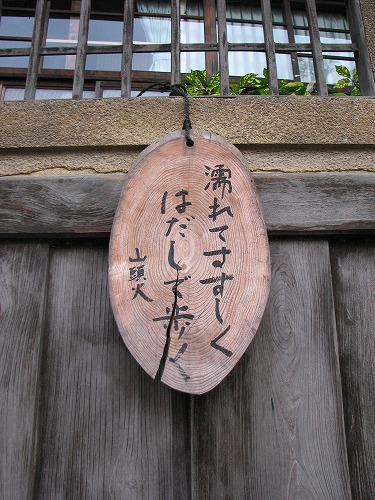 濡れてすずしく
はだしで歩く
山頭火